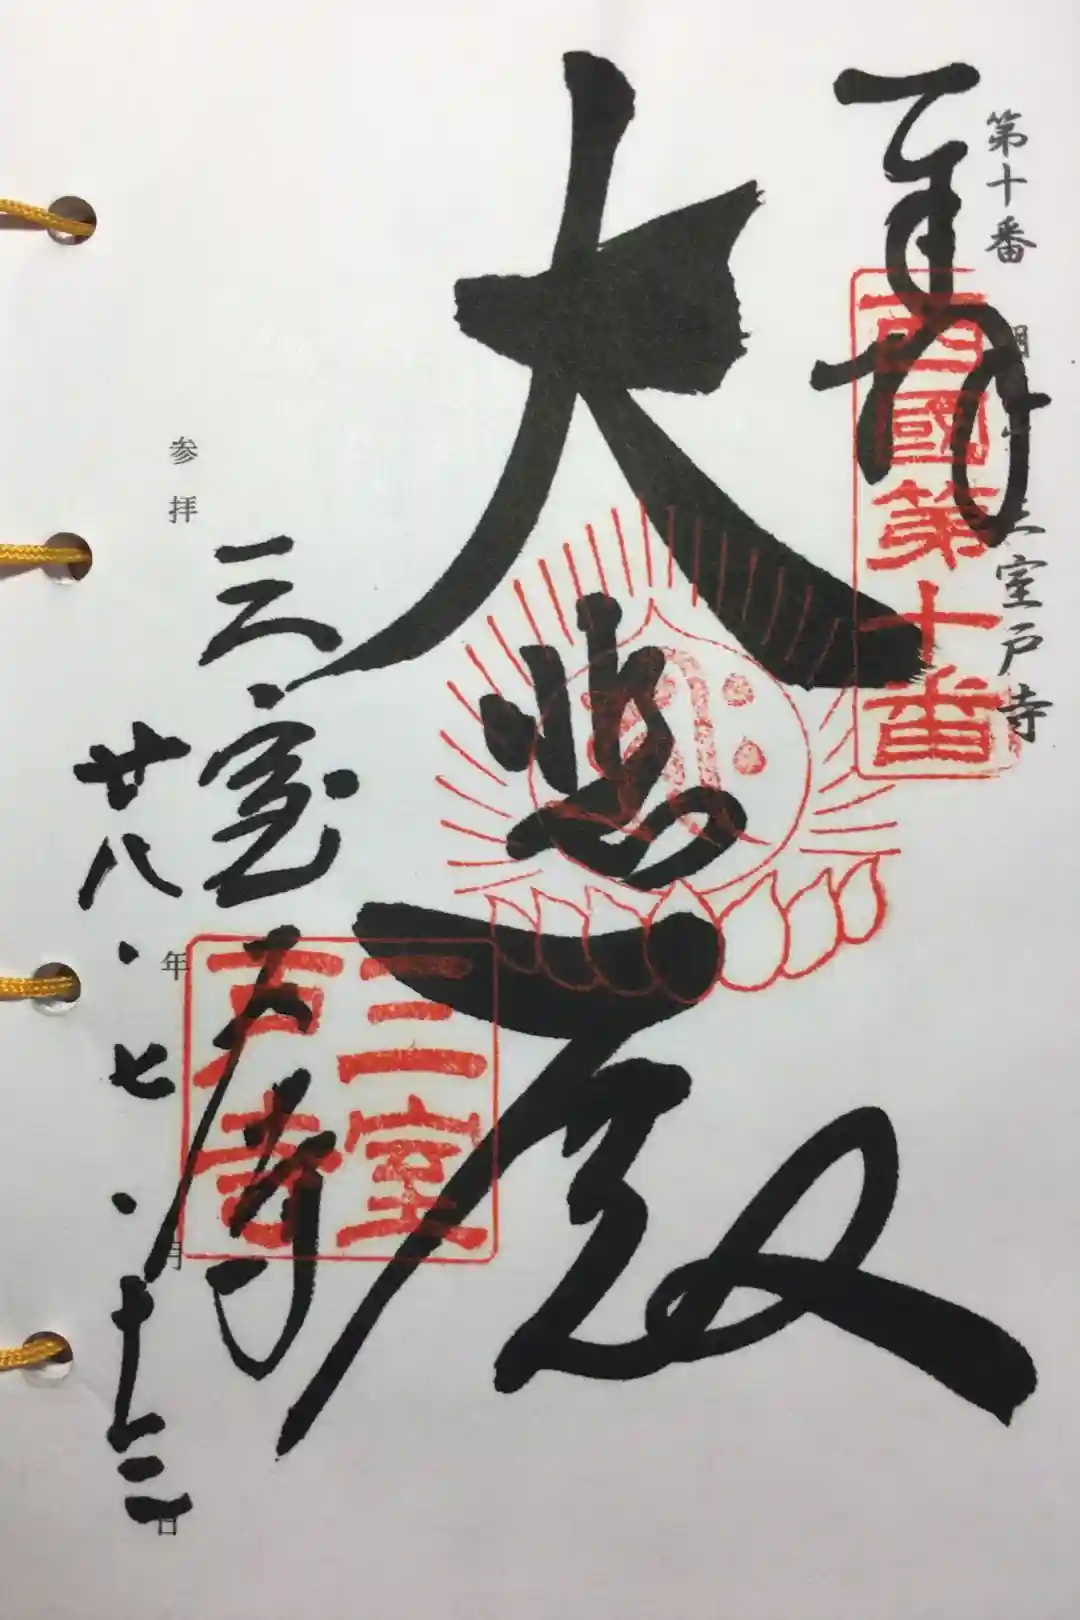 第十番 明星山 三室戸寺
奉拝
西國第十番
大悲殿
三室戸寺
三室戸寺
参拝 年 月 日
廿八・七・十二